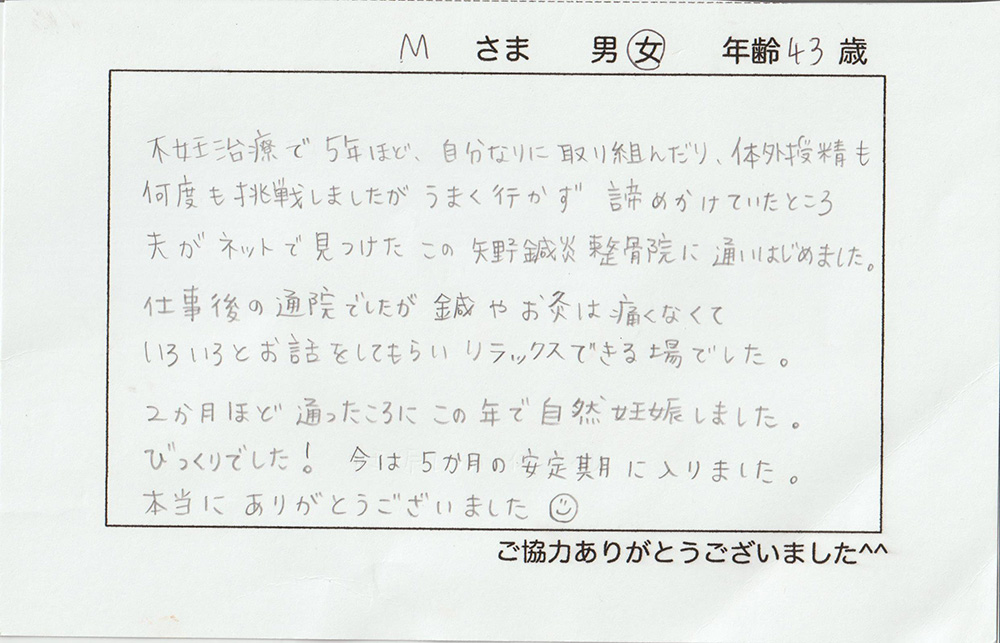 M さま 男 女 年齢 43 歳
不妊治療で 5年ほど、自分なりに 取り組んだり、体外授精も
何度も挑戦しましたが うまく行かず 諦めかけていたところ
夫が ネットで見つけた この 矢野鍼灸整骨院に 通いはじめました。
仕事後の通院でしたが 鍼やお灸は痛くなくて
いろいろとお話をしてもらい リラックスできる場でした。
2か月ほど 通ったころに この年で自然妊娠しました。
びっくりでした! 今は 5か月の安定期に入りました。
本当に ありがとうございました ☺
ご協力ありがとうございました^^